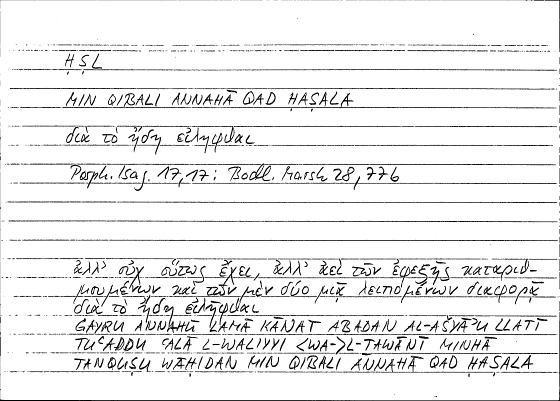 ḤṢL
MIN QIBALI ANNAHĀ QAD ḤAṢALA
διὰ τὸ ἤδη εἰλῆφθαι
Porph. Isag. 17,17: Bodl. Marsh 28, 776
ἀλλ' οὐχ οὕτως ἔχει, ἀλλ' ἀεὶ τῶν ἐφεξῆς καταριθ-
μουμένων καὶ τῶν μὲν δύο μιᾷ λειπομένων διαφορᾷ
διὰ τὸ ἤδη εἰλῆφθαι
ĠAYRU ANNAHŪ LAMĀ KĀNAT ABADAN AL-AŠYĀʾU LLATĪ
TUʿADDU ʿALĀ L-WALIYYI <WA->L-TAWĀNĪ MINHĀ
TANQUṢU WĀḤIDAN MIN QIBALI ANNAHĀ QAD ḤAṢALA